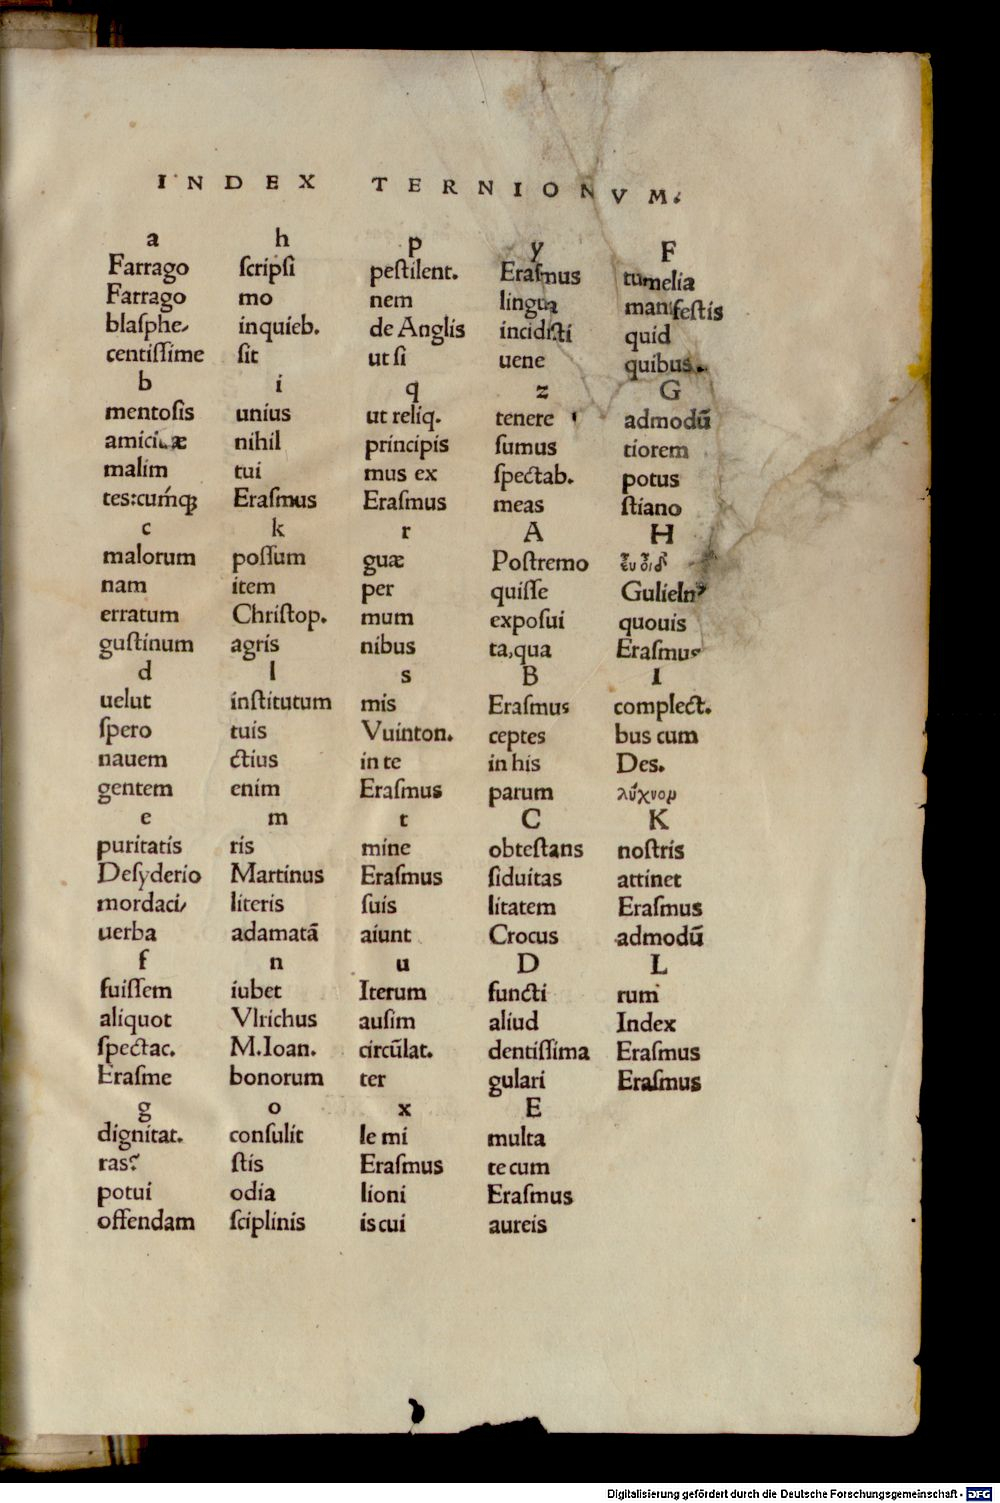 INDEX TERNIONVM.
a
Farrago
Farrago
blaſphe⸗
centiſſime
b
mentoſis
amici æ
malim
tes:cumq;
c
malorum
nam
erratum
guſtinum
d
uelut
ſpero
nauem
gentem
e
puritatis
Deſyderio
mordaci⸗
uerba
f
fuiſſem
aliquot
ſpectac.
Eraſme
g
dignitat.
ras?
potui
offendam
h
ſcripſi
mo
inquieb.
ſit
i
unius
nihil
tui
Eraſmus
k
poſſum
item
Chriſtop.
agris
l
inſtitutum
tuis
ctius
enim
m
ris
Martinus
literis
adamatã
n
iubet
Vlrichus
M.Ioan.
bonorum
o
conſulit
ſtis
odia
ſciplinis
p
peſtilent.
nem
de Anglis
ut ſi
q
ut reliq.
principis
mus ex
Eraſmus
r
guæ
per
mum
nibus
s
mis
Vuinton.
in te
Eraſmus
t
mine
Eraſmus
ſuis
aiunt
u
Iterum
auſim
circũlat.
ter
x
le mi
Eraſmus
lioni
is cui
y
Eraſmus
lingua
incidiſti
uene
z
tenere
ſumus
ſpectab.
meas
A
Poſtremo
quiſſe
expoſui
ta,qua
B
Eraſmus
ceptes
in his
parum
C
obteſtans
ſiduitas
litatem
Crocus
D
functi
aliud
dentiſſima
gulari
E
multa
te cum
Eraſmus
aureis
F
tumelia
manifeſtis
quid
quibus
G
admodũ
tiorem
potus
ſtiano
H
Gulielm
quouis
Eraſmus
I
complect.
bus cum
Des.
λύχνον
K
noſtris
attinet
Eraſmus
admodũ
L
rum
Index
Eraſmus
Eraſmus
Digitalisierung gefördert durch die Deutsche Forschungsgemeinschaft - DFG